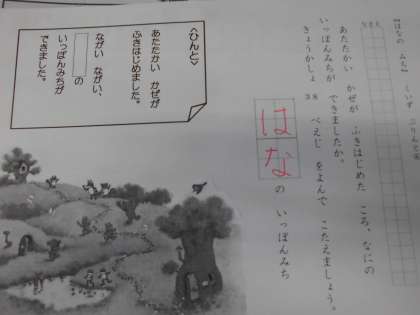 【はなの みち】
なまえ
あたたかい かぜが ふきはじめた ころ、なにの
いっぽんみちが できましたか。
きょうかしょ 38 ぺえじ をよんで こたえましょう。
はな の いっぽんみち
〈ひんと〉
あたたかい かぜが
ふきはじめました。
ながい ながい、
の
いっぽんみちが
できました。